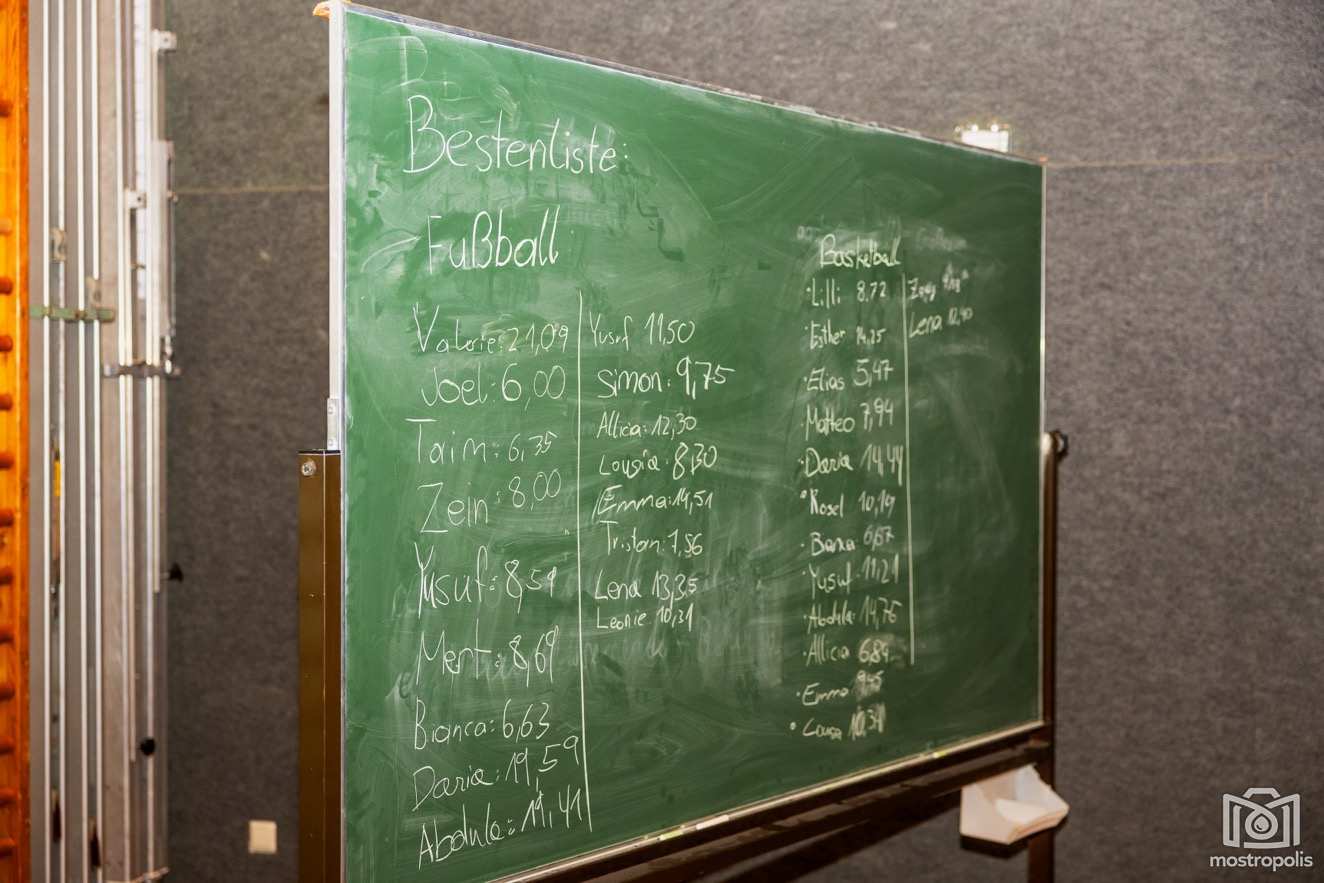 Bestenliste:
Fußball
Valerie: 21,09
Joel: 6,00
Taim: 6,35
Zein: 8,00
Yusuf: 8,59
Mert: 8,69
Bianca: 6,63
Daria: 19,59
Abdula: 19,41
Yusuf 11,50
Simon: 9,75
Allicia: 12,30
Lousia: 8,30
Emma: 14,51
Tristan: 7,56
Lena 13,35
Leonie 10,31
Basketball
· Lilli 8,72
· Esther 14,25
· Elias 5,47
· Matteo 7,94
· Daria 14,44
· Rosel 10,19
· 6,87
· Yusuf 11,21
· Abdula 14,76
· Allicia 6,84
· Emma 9,45
· Lousa 10,31
Lena
mostropolis